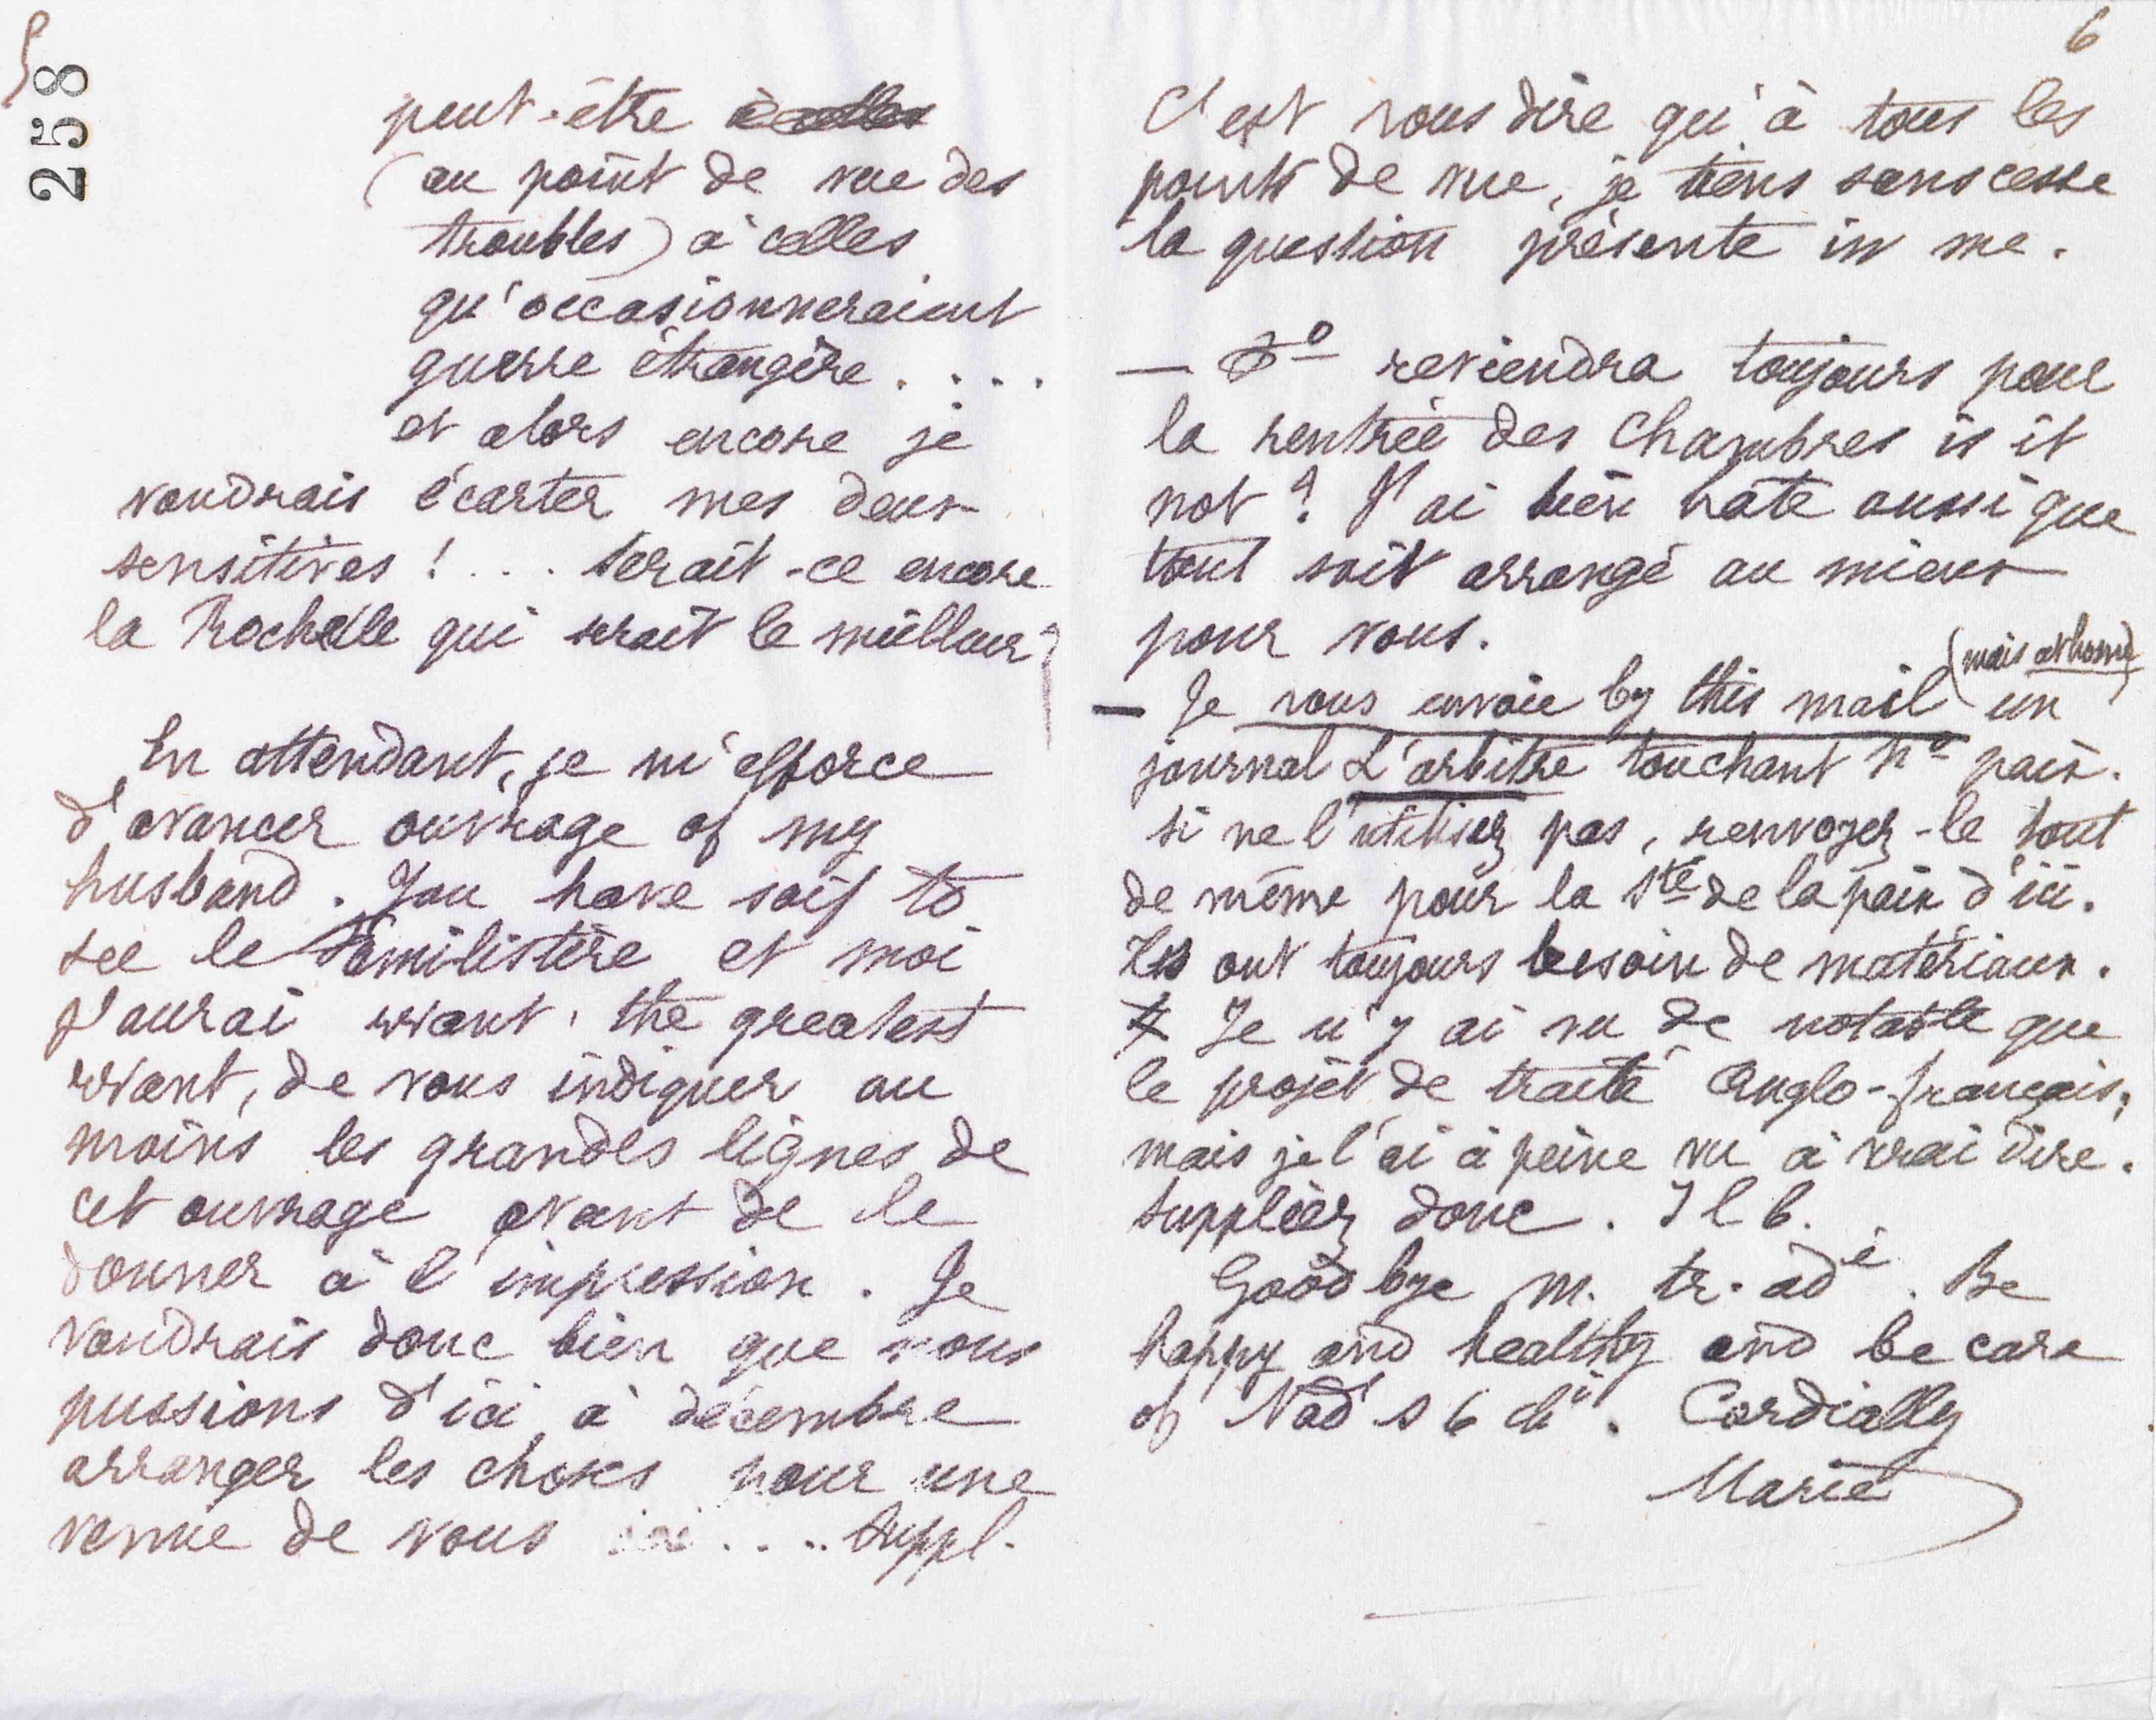 258
peut-être
(au point de vue des
troubles) à celles
qu'occasionneraient
guerre étrangère. ...
et alors encore je
voudrais écarter mes deux
sensitives ! ... serait-ce encore
la Rochelle qui serait le meilleur?
En attendant, je m'efforce
d'avancer ouvrage of my
husband. You have soif to
see le Familistère et moi
j'aurai want, the greatest
want, de vous indiquer au
moins les grandes lignes de
cet ouvrage avant de le
donner à l'impression. Je
voudrais donc bien que nous
pussions d'ici à décembre
arranger les choses pour une
venue de vous ici .... Suppl.
6
C'est vous dire qu'à tous les
points de vue, je tiens sans cesse
la question présente in me.
— reviendra toujours pour
la rentrée des Chambres is it
not ? J'ai bien hâte aussi que
tout soit arrangé au mieux
pour vous.
(mais at home)
— Je vous envoie by this mail un
journal L'arbitre touchant paix.
si ne l'utilisez pas, renvoyez-le tout
de même pour la Sté de la paix d'ici.
Ils ont toujours besoin de matériaux.
Je n'y ai vu de notable que
le projet de traité Anglo-français,
mais je l'ai à peine vu à vrai dire.
Suppléez donc. I l b.
Good bye m. tr. adé. Be
happy and healthy and be care
of Nad's 6 chi. Cordially
Marie